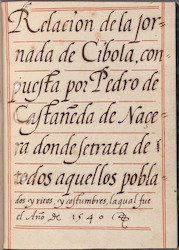 Relacion de la Jor=
nada de Cibola, con=
puesta por Pedro de
Castañeda de Naçe=
ra donde se trata de
todos aquellos pobla=
dos y ritos, y costumbres, la qual fue
el Año de 1540